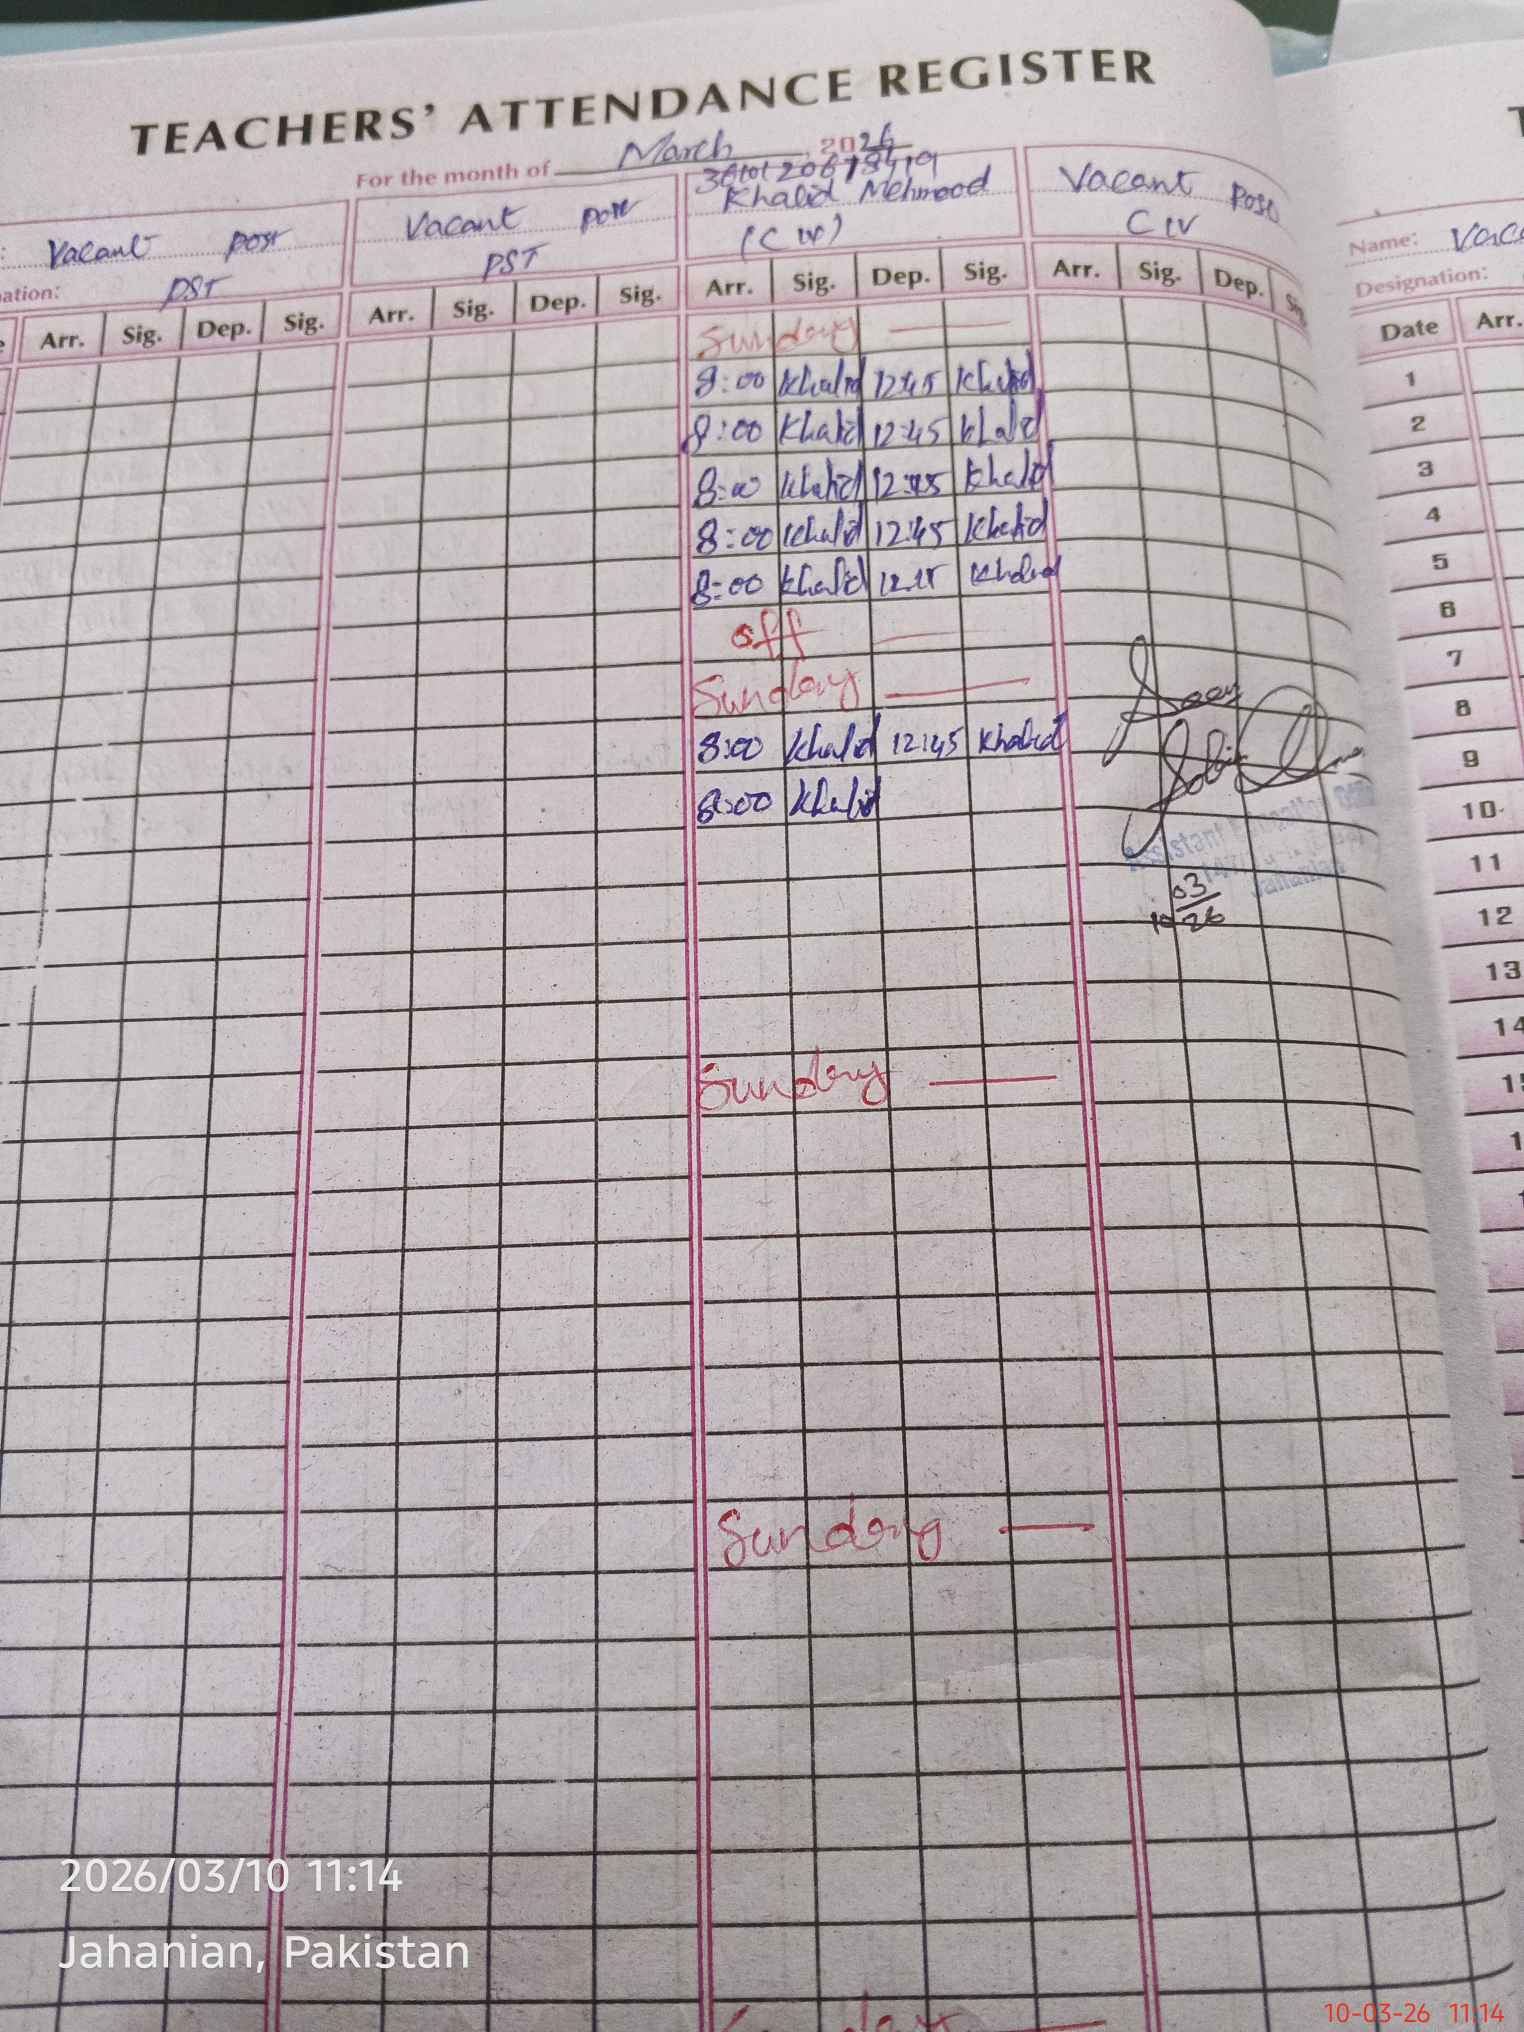 TEACHERS' ATTENDANCE REGISTER
For the month of March, 2026
Vacant post
ation: PST
Arr. Sig. Dep. Sig.
Vacant post
PST
Arr. Sig. Dep. Sig.
Khalid Mehmood
(CIV)
Arr. Sig. Dep. Sig.
Sunday
8:00 Khalid 12:45 Khalid
8:00 Khalid 12:45 Khalid
8:00 Khalid 12:45 Khalid
8:00 Khalid 12:45 Khalid
8:00 Khalid Khalid
off
Sunday
8:00 Khalid 12:45 Khalid
8:00 Khalid
Sunday
Sunday
Vacant Post
CIV
Arr. Sig. Dep. Sig.
Assistant Education
Jahanian
03
10 26
Name:
Designation:
Date Arr.
1
2
3
4
5
6
7
8
9
10
11
12
13
14
2026/03/10 11:14
Jahanian, Pakistan
10-03-26 11:14